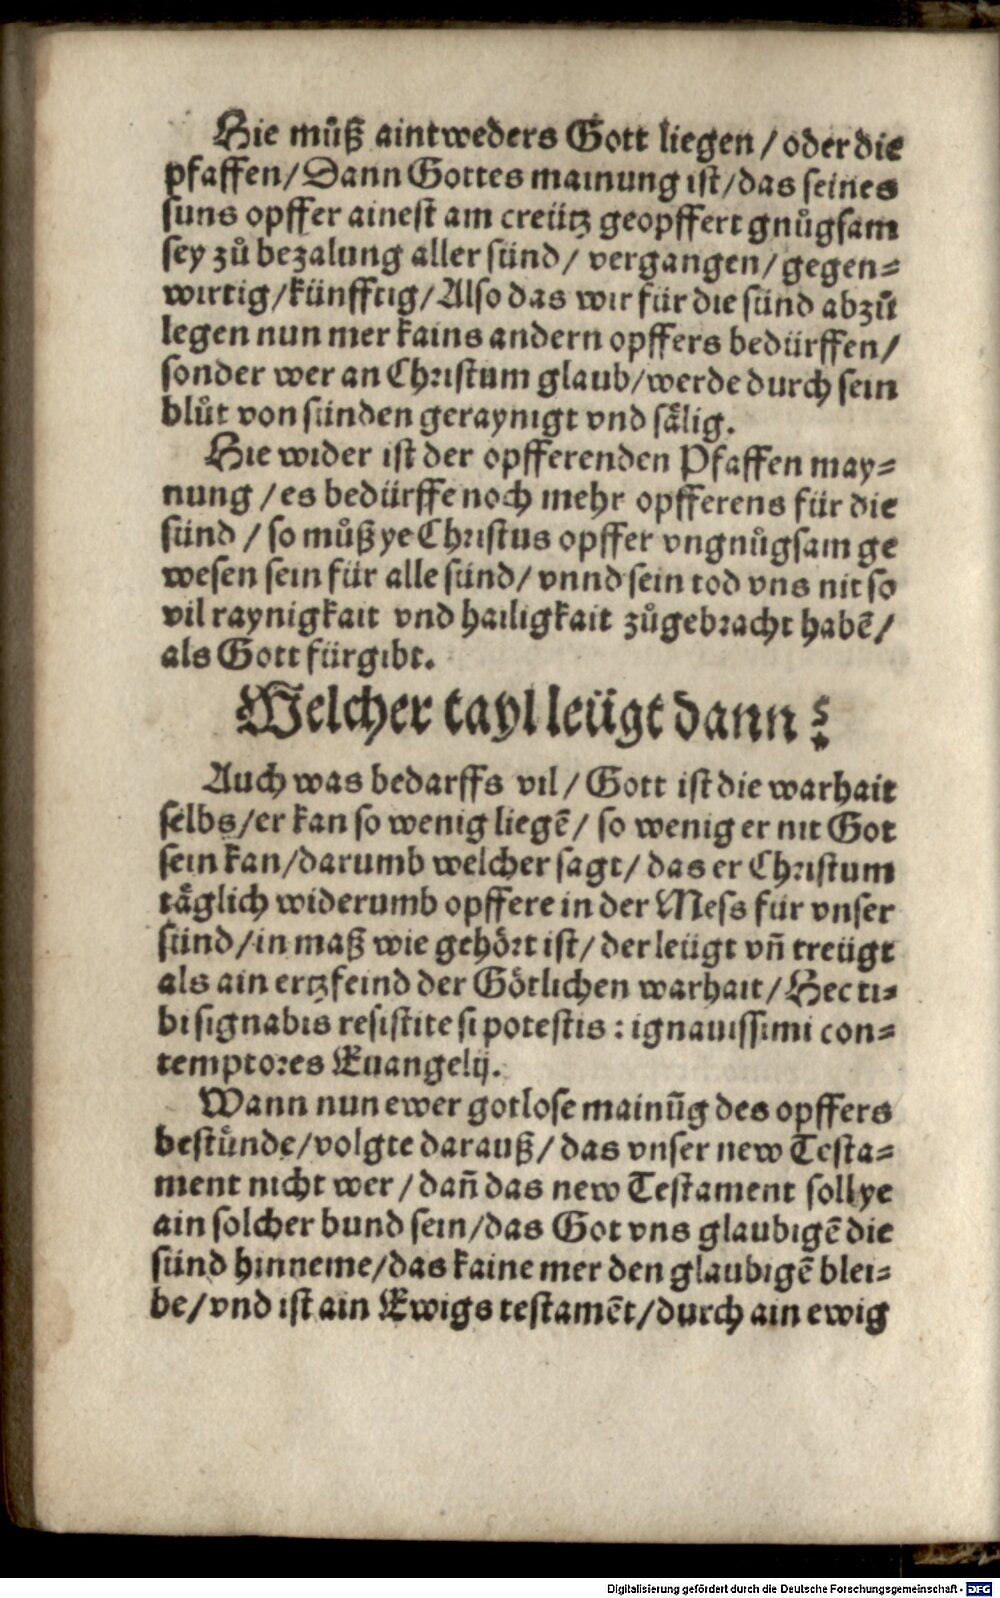 Hie můß aintweders Gott liegen / oder die
pfaffen / Dann Gottes mainung ist / das seines
suns opffer ainest am creütz geopffert gnůgsam
sey zů bezalung aller sünd / vergangen / gegen=
wirtig / künfftig / Also das wir für die sünd abzů
legen nun mer kains andern opffers bedürffen /
sonder wer an Christum glaub / werde durch sein
blůt von sünden geraynigt vnd sälig.
Hie wider ist der opfferenden Pfaffen may=
nung / es bedürffe noch mehr opfferens für die
sünd / so můß ye Christus opffer vngnůgsam ge
wesen sein für alle sünd / vnnd sein tod vns nit so
vil raynigkait vnd hailigkait zůgebracht habē /
als Gott fürgibt.
Welcher tayl leügt dann?
Auch was bedarffs vil / Gott ist die warhait
selbs / er kan so wenig liegē / so wenig er nit Got
sein kan / darumb welcher sagt / das er Christum
täglich widerumb opffere in der Mess für vnser
sünd / in maß wie gehört ist / der leügt vñ treügt
als ain ertzfeind der Götlichen warhait / Hec ti=
bi signabis resistite si potestis : ignauissimi con=
temptores Euangelij.
Wann nun ewer gotlose mainūg des opffers
bestünde / volgte darauß / das vnser new Testa=
ment nicht wer / dañ das new Testament soll ye
ain solcher bund sein / das Got vns glaubigē die
sünd hinneme / das kaine mer den glaubigē blei=
be / vnd ist ain Ewigs testamēt / durch ain ewig
Digitalisierung gefördert durch die Deutsche Forschungsgemeinschaft - DFG